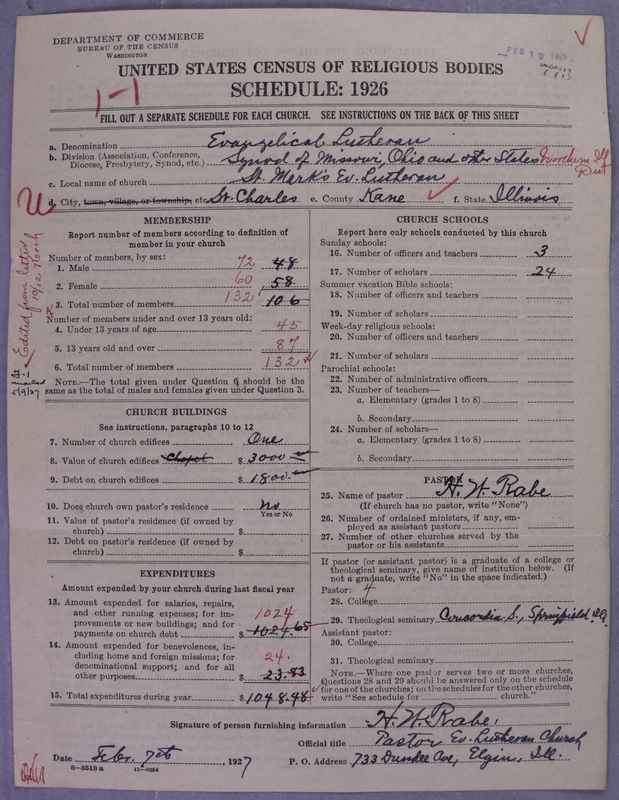 DEPARTMENT OF COMMERCE
BUREAU OF THE CENSUS
WASHINGTON
FEB 10 1927
UNITED STATES CENSUS OF RELIGIOUS BODIES
SCHEDULE: 1926
1-1
FILL OUT A SEPARATE SCHEDULE FOR EACH CHURCH. SEE INSTRUCTIONS ON THE BACK OF THIS SHEET
a. Denomination Evangelical Lutheran
b. Division (Association, Conference, Diocese, Presbytery, Synod, etc.) Synod of Missouri, Ohio and other States Northern Ill Dist
c. Local name of church St. Mark's Ev. Lutheran
d. City, town, village, or township, etc. St. Charles e. County Kane f. State Illinois
MEMBERSHIP
Report number of members according to definition of
member in your church
Number of members, by sex:
1. Male 72 48
2. Female 60 58
3. Total number of members 132 106
Number of members under and over 13 years old:
4. Under 13 years of age 45
5. 13 years old and over 87
6. Total number of members 132
NOTE.—The total given under Question 6 should be the
same as the total of males and females given under Question 3.
Edited from letter
CHURCH BUILDINGS
See instructions, paragraphs 10 to 12
7. Number of church edifices One
8. Value of church edifices Chapel $ 3000
9. Debt on church edifices $ 1800
10. Does church own pastor's residence No
Yes or No
11. Value of pastor's residence (if owned by
church) $
12. Debt on pastor's residence (if owned by
church) $
EXPENDITURES
Amount expended by your church during last fiscal year
13. Amount expended for salaries, repairs,
and other running expenses; for im-
provements or new buildings; and for 1024
payments on church debt $ 1024.65
14. Amount expended for benevolences, in-
cluding home and foreign missions; for
denominational support; and for all 24.
other purposes $ 23.83
15. Total expenditures during year $ 1048.48
CHURCH SCHOOLS
Report here only schools conducted by this church
Sunday schools:
16. Number of officers and teachers 3
17. Number of scholars 24
Summer vacation Bible schools:
18. Number of officers and teachers
19. Number of scholars
Week-day religious schools:
20. Number of officers and teachers
21. Number of scholars
Parochial schools:
22. Number of administrative officers
23. Number of teachers—
a. Elementary (grades 1 to 8)
b. Secondary
24. Number of scholars—
a. Elementary (grades 1 to 8)
b. Secondary
PASTOR
25. Name of pastor H. W. Rabe
(If church has no pastor, write "None")
26. Number of ordained ministers, if any, em-
ployed as assistant pastors
27. Number of other churches served by the
pastor or his assistants
If pastor (or assistant pastor) is a graduate of a college or
theological seminary, give name of institution below. (If
not a graduate, write "No" in the space indicated.)
Pastor:
28. College
29. Theological seminary Concordia S., Springfield Ill.
Assistant pastor:
30. College
31. Theological seminary
NOTE.—Where one pastor serves two or more churches,
Questions 28 and 29 should be answered only on the schedule
for one of the churches; on the schedules for the other churches,
write "See schedule for church."
Signature of person furnishing information H. W. Rabe.
Official title Pastor Ev. Lutheran Church
Date Febr. 7th, 1927 P. O. Address 733 Dundee Ave, Elgin, Ill.
8—5518 a 11—9364